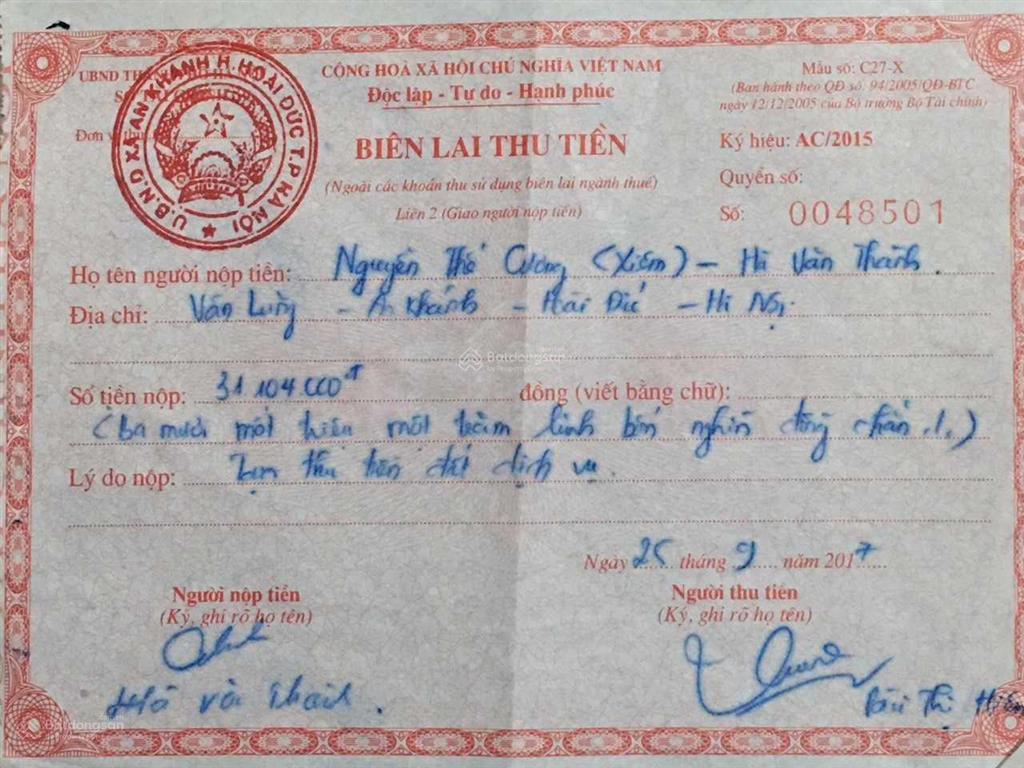 U.B.N.D XÃ AN KHÁNH H. HOÀI ĐỨC T.P HÀ NỘI
UBND
Đơn vị thu
CỘNG HOÀ XÃ HỘI CHỦ NGHĨA VIỆT NAM
Độc lập - Tự do - Hạnh phúc
BIÊN LAI THU TIỀN
(Ngoài các khoản thu sử dụng biên lai ngành thuế)
Liên 2 (Giao người nộp tiền)
Mẫu số: C27-X
(Ban hành theo QĐ số: 94/2005/QĐ-BTC
ngày 12/12/2005 của Bộ trưởng Bộ Tài chính)
Ký hiệu: AC/2015
Quyển số:
Số: 0048501
Họ tên người nộp tiền: Nguyễn Thế Cương (Xiêm) - Hà Văn Thành
Địa chỉ: Vân Lũng - An Khánh - Hoài Đức - Hà Nội
Batdongsan
Số tiền nộp: 31.104.000đ đồng (viết bằng chữ):
(ba mươi mốt triệu một trăm linh bốn nghìn đồng chẵn ./.)
Lý do nộp: Tạm thu tiền đất dịch vụ.
Ngày 25 tháng 9 năm 2017
Người nộp tiền
(Ký, ghi rõ họ tên)
Hà Văn Thành.
Người thu tiền
(Ký, ghi rõ họ tên)
Thị Hiền
Batdongsan